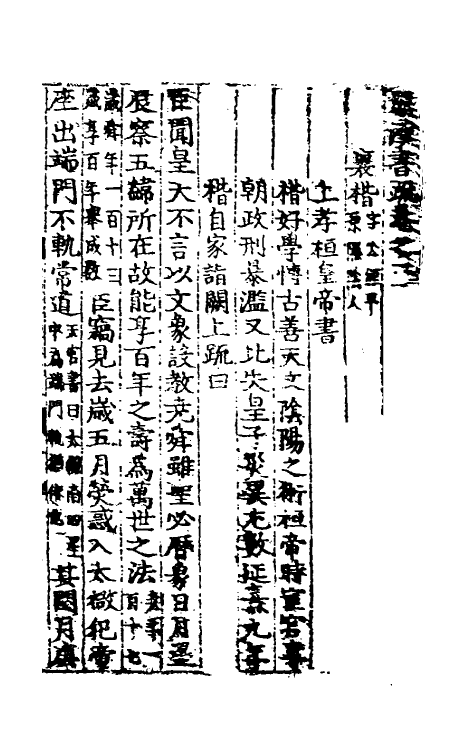 漢書疏卷之
襄楷字公矩平原隰陰人
上孝桓皇帝書
楷好學博古善天文陰陽之術桓帝時宦官專
朝政刑暴濫又比失皇子災異尤數延熹九年
楷自家詣闕上疏曰
臣聞皇天不言以文象設教堯舜雖聖必曆象日月星
辰察五緯所在故能享百年之壽為萬世之法堯年一百十七
歲舜年一百十三歲享百年舉成數臣竊見去歲五月熒惑入太微犯帝
座出端門不軌常道天官書曰太微南四星中為端門軌猶依也其閏月庚